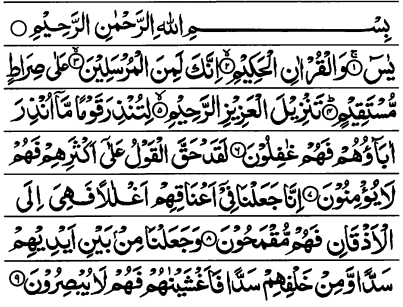 بِسْمِ اللهِ الرَّحْمٰنِ الرَّحِيْمِ ○
يٰسٓ ۚ﴿۱﴾ وَالْقُرْاٰنِ الْحَكِيْمِ ۙ﴿۲﴾ اِنَّكَ لَمِنَ الْمُرْسَلِيْنَ ۙ﴿۳﴾ عَلٰى صِرَاطٍ
مُّسْتَقِيْمٍ ؕ﴿۴﴾ تَنْزِيْلَ الْعَزِيْزِ الرَّحِيْمِ ۙ﴿۵﴾ لِتُنْذِرَ قَوْمًا مَّاۤ اُنْذِرَ
اٰبَآؤُهُمْ فَهُمْ غٰفِلُوْنَ ﴿۶﴾ لَقَدْ حَقَّ الْقَوْلُ عَلٰٓى اَكْثَرِهِمْ فَهُمْ
لَا يُؤْمِنُوْنَ ﴿۷﴾ اِنَّا جَعَلْنَا فِيْۤ اَعْنَاقِهِمْ اَغْلٰلًا فَهِىَ اِلَى
الْاَذْقَانِ فَهُمْ مُّقْمَحُوْنَ ﴿۸﴾ وَجَعَلْنَا مِنْۢ بَيْنِ اَيْدِيْهِمْ
سَدًّا وَّمِنْ خَلْفِهِمْ سَدًّا فَاَغْشَيْنٰهُمْ فَهُمْ لَا يُبْصِرُوْنَ ﴿۹﴾